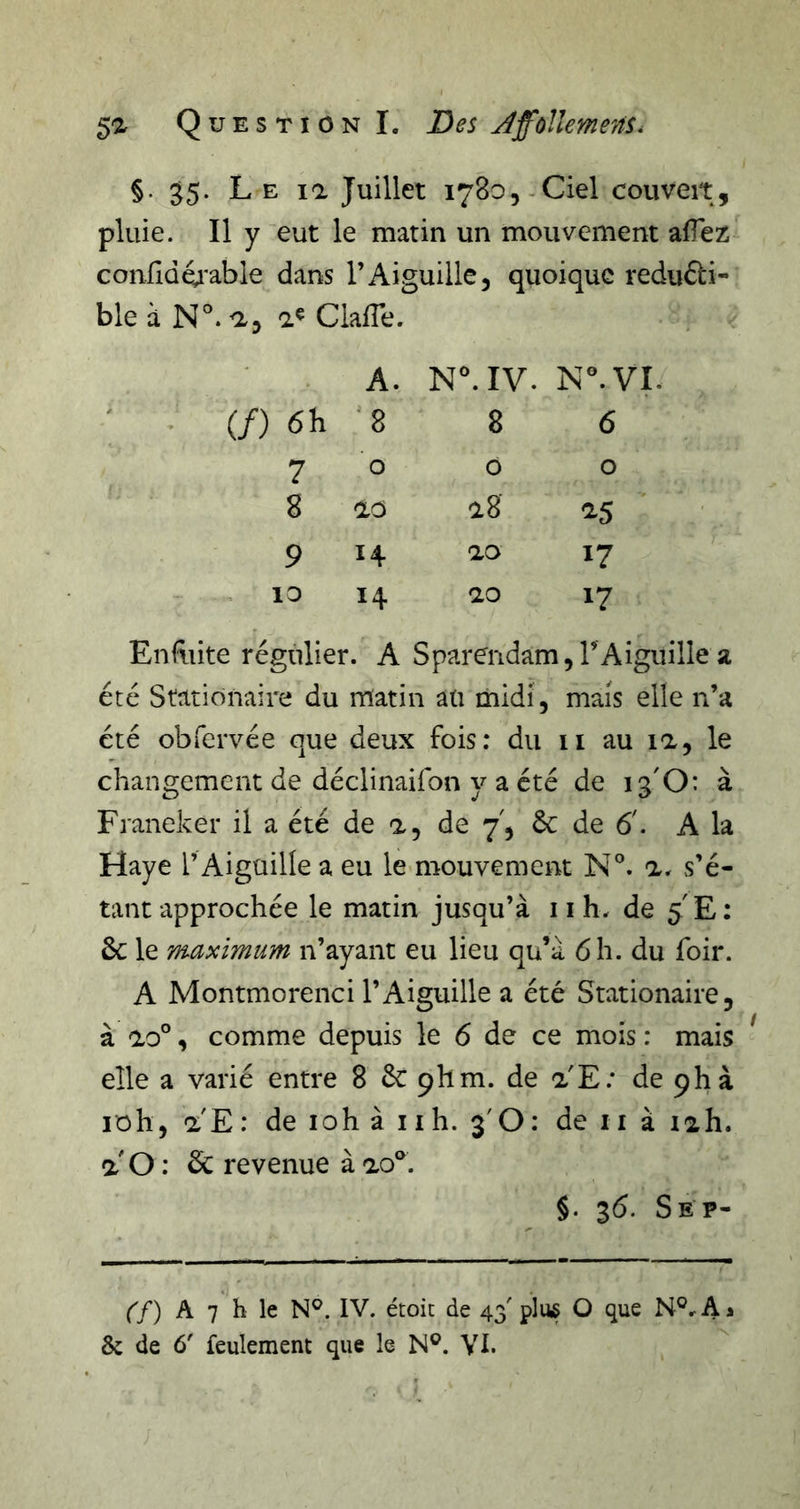 52 QUESTION I. Des Affollemens.
§. 35. LE 12 Juillet 1780, Ciel couvert,
pluie. Il y eut le matin un mouvement aſſez
conſidérable dans l'Aiguille, quoique reducti-
ble à N°. 2, 2e Claſſe.
A. N°. IV. N°. VI.
(f) 6h 8 8 6
7 0 0 0
8 20 28 25
9 14 20 17
10 14 20 17
Enſuite régulier. A Sparendam, l'Aiguille a
été Stationaire du matin au midi, mais elle n'a
été obſervée que deux fois: du 11 au 12, le
changement de déclinaiſon y a été de 13′O: à
Franeker il a été de 2, de 7′, & de 6′. A la
Haye l'Aiguille a eu le mouvement N°. 2. s'é-
tant approchée le matin jusqu'à 11 h. de 5′E:
& le maximum n'ayant eu lieu qu'à 6 h. du ſoir.
A Montmorenci l'Aiguille a été Stationaire,
à 20°, comme depuis le 6 de ce mois: mais
elle a varié entre 8 & 9hm. de 2′E: de 9h à
10h, 2′E: de 10h à 11h. 3′O: de 11 à 12h.
2′O: & revenue à 20°.
§. 36. SEP-
(f) A 7 h le N°. IV. étoit de 43′ plus O que N°. A,
& de 6′ ſeulement que le N°. VI.